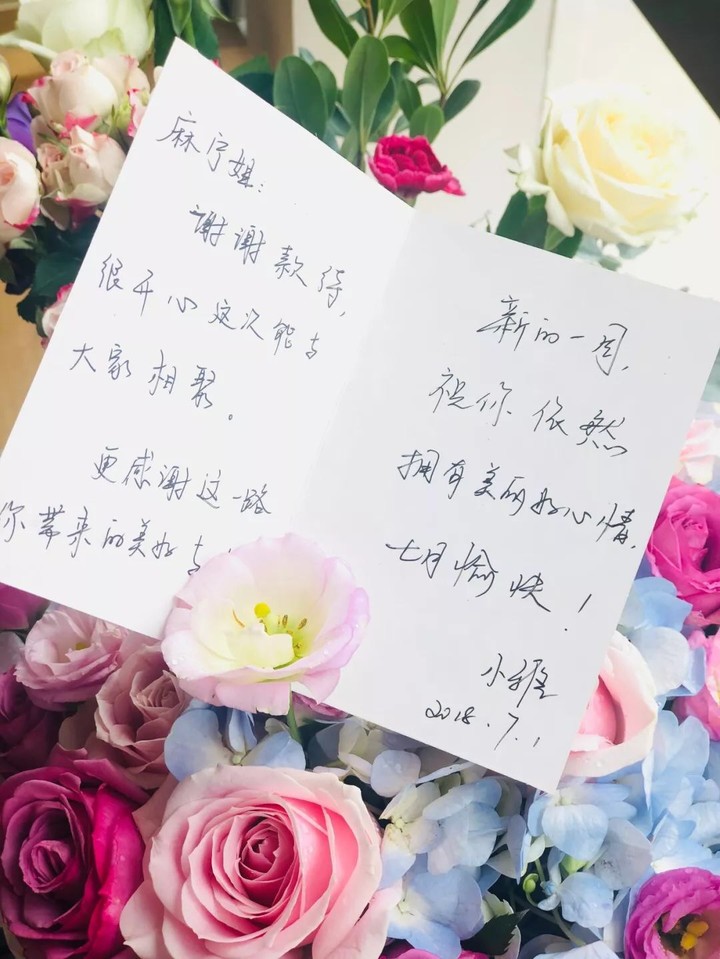 麻宁姐：
谢谢款待，
很开心这次能与
大家相聚。
更感谢这一路
你带来的美好与
新的一周，
祝你依然
拥有美丽好心情，
七月愉快！
小雅
2018.7.1